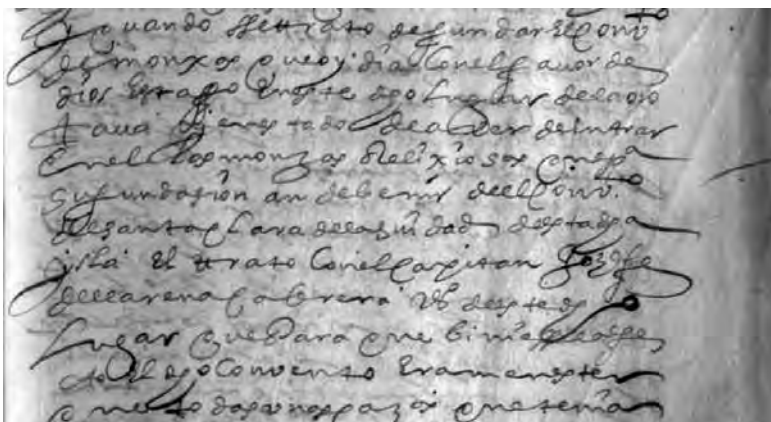 quando se trato de fundar El conv.to
de monxas que oy dia Con el favor de
dios Esta En este dho Lugar de la oro
taua bien estado de auer de entrar
En el las monxas Relixiosas que pa
su fundasion an de benir del Conv.to
de santa Clara de la siudad desta dha
isla El trato Con el Capitan
de llarena Cabrera Vº deste dho
Lugar que para que biniese a efe
cto El dho Convento Era menester
que todas unas casas que tenia